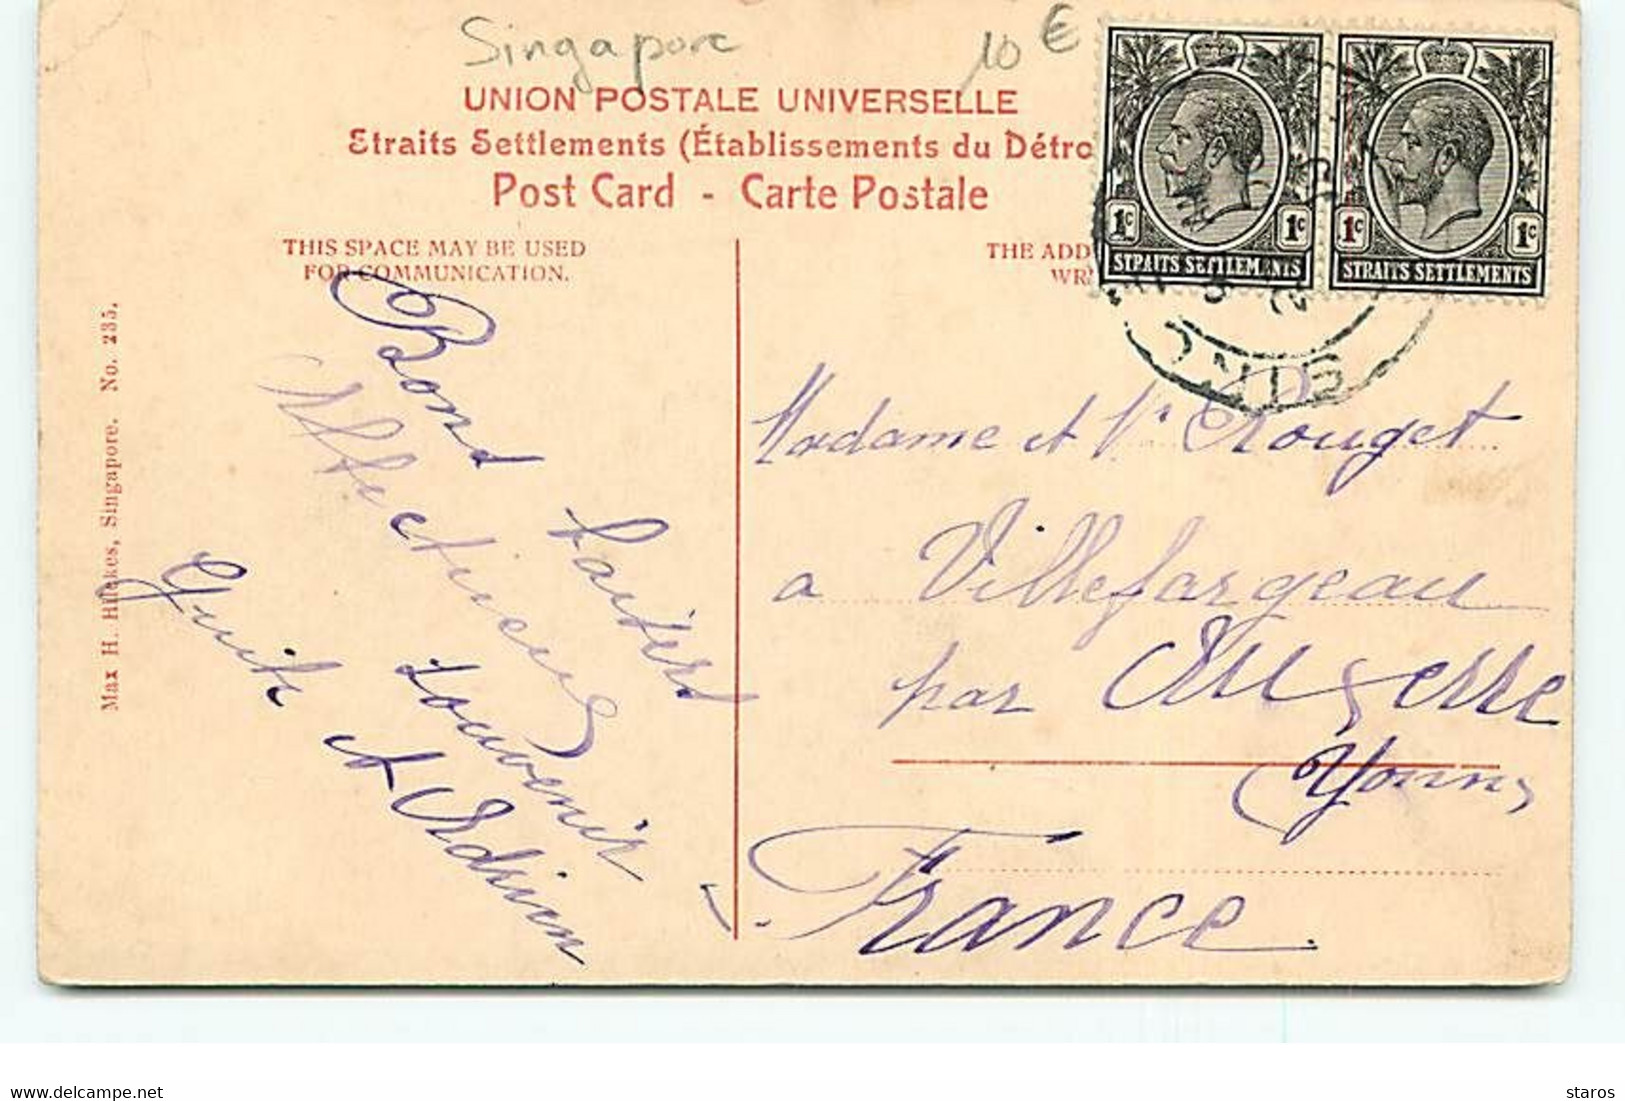 Singapore
10 €
UNION POSTALE UNIVERSELLE
Straits Settlements (Établissements du Détro
Post Card - Carte Postale
THIS SPACE MAY BE USED
FOR COMMUNICATION.
THE ADD
WR
1c 1c
STRAITS SETTLEMENTS
1c 1c
STRAITS SETTLEMENTS
Max H. Hilckes, Singapore. No. 235.
Bons baisers
Affectueux
souvenir
et Adrien
Madame et Mr Rouget
a Villefargeau
par Auxerre
(Yonne)
France
staros